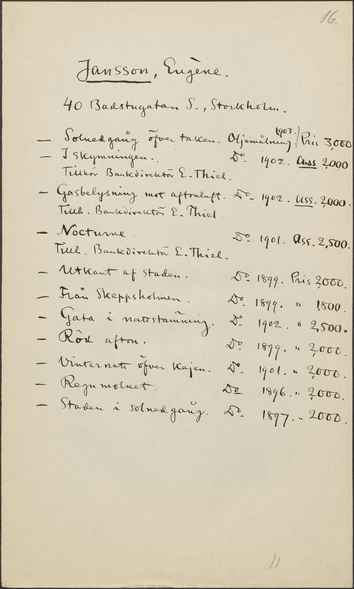 16.
Jansson, Eugène.
40 Badstugatan S., Stockholm.
— Solnedgång öfver taken. Oljemålning 1903. Pris 3,000
— I skymningen. Do. 1902. Ass. 2,000
Tillhör Bankdirektör E. Thiel.
— Gasbelysning mot aftonluft. Do. 1902. Ass. 2,000.
Tillh. Bankdirektör E. Thiel
— Nocturne. Do. 1901. Ass. 2,500.
Tillh. Bankdirektör E. Thiel.
— Utkant af staden. Do. 1899. Pris 2,000.
— Från Skeppsholmen. Do. 1899. " 1800.
— Gata i nattstämning. Do. 1902. " 2,500.
— Röd afton. Do. 1899. " 2,000.
— Vinternatt öfver Kajen. Do. 1901. " 2,000.
— Regnmolnet. Do 1896. " 2,000.
— Staden i solnedgång. Do. 1897. " 2000.
11